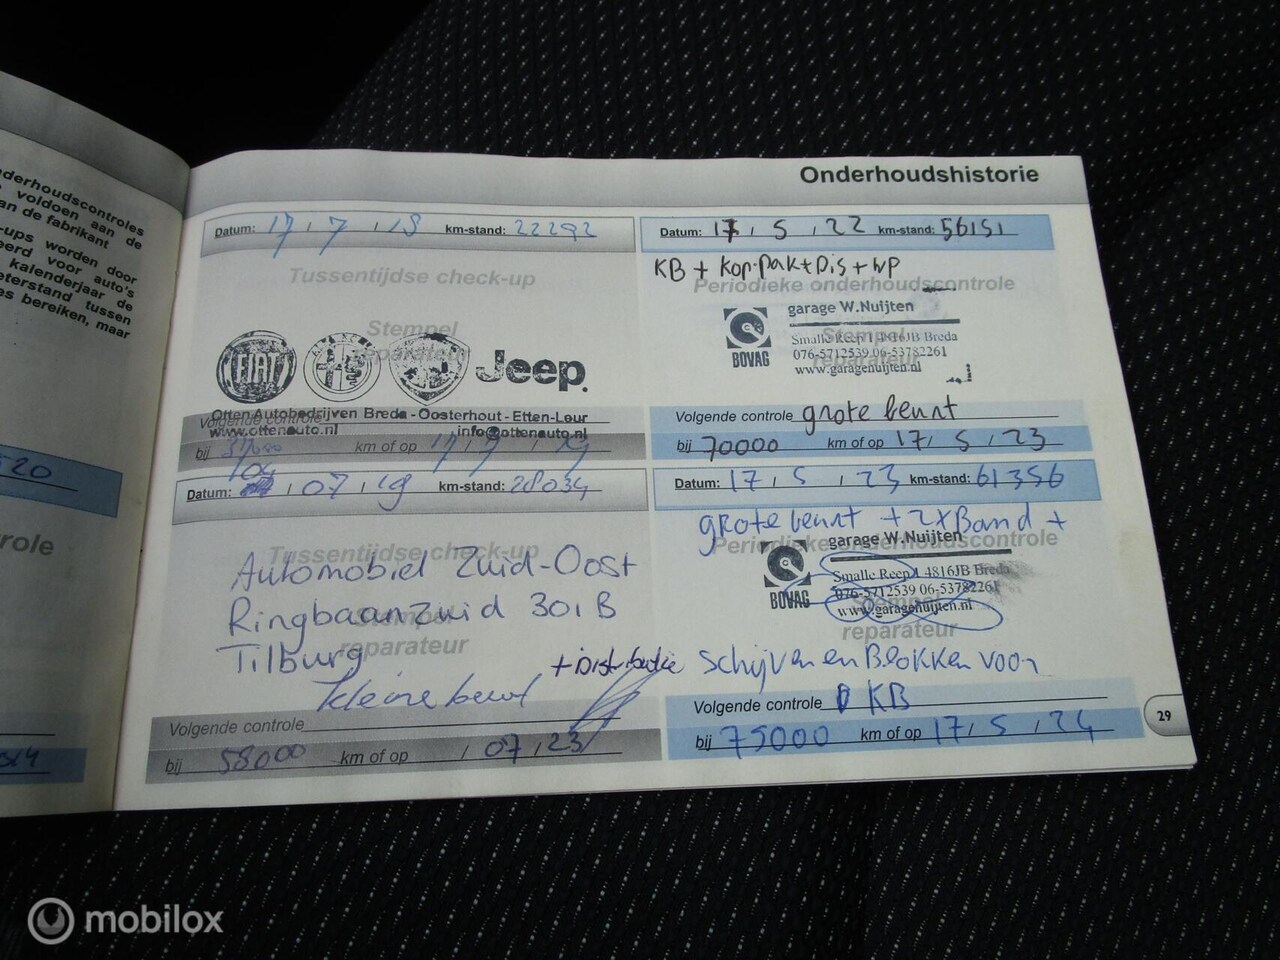 nderhoudscontroles
voldoen aan de
an de fabrikant
-ups worden door
eerd voor auto's
kalenderjaar de
eterstand tussen
es bereiken, maar
520
role
2014
Onderhoudshistorie
Datum: 17 / 7 / 18 km-stand: 22292
Tussentijdse check-up
Stempel
reparateur
FIAT
Jeep
Otten Autobedrijven Breda - Oosterhout - Etten-Leur
Volgende controle
www.ottenauto.nl info@ottenauto.nl
bij 37000 km of op 17 / 7 / 19
Datum: / 07 / 19 km-stand: 28034
Tussentijdse check-up
Automobiel Zuid-Oost
Ringbaan Zuid 301B
Stempel
Tilburg
reparateur
+ Distributie
kleine beurt
Volgende controle
bij 58000 km of op / 07 / 23
Datum: 17 / 5 / 22 km-stand: 56151
KB + Kop.pak + Dis + WP
Periodieke onderhoudscontrole
garage W.Nuijten
Stempel
Smalle Reep 1 4816JB Breda
076-5712539 06-53782261
reparateur
BOVAG
www.garagenuijten.nl
Volgende controle grote beurt
bij 70000 km of op 17 / 5 / 23
Datum: 17 / 5 / 23 km-stand: 61356
grote beurt + 2x Band +
Periodieke onderhoudscontrole
garage W.Nuijten
Smalle Reep 1 4816JB Breda
076-5712539 06-53782261
BOVAG
Stempel
www.garagenuijten.nl
reparateur
schijven en Blokken voor
Volgende controle KB
bij 75000 km of op 17 / 5 / 24
29
mobilox